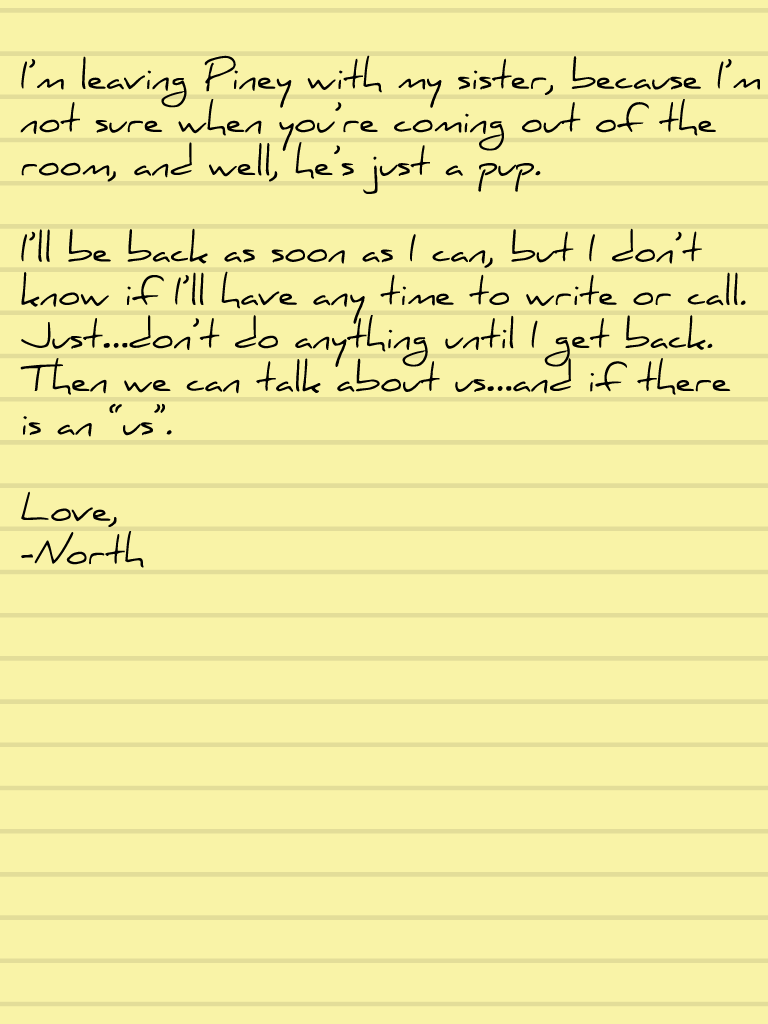 I'm leaving Piney with my sister, because I'm
not sure when you're coming out of the
room, and well, he's just a pup.
I'll be back as soon as I can, but I don't
know if I'll have any time to write or call.
Just...don't do anything until I get back.
Then we can talk about us...and if there
is an “us”.
Love,
-North